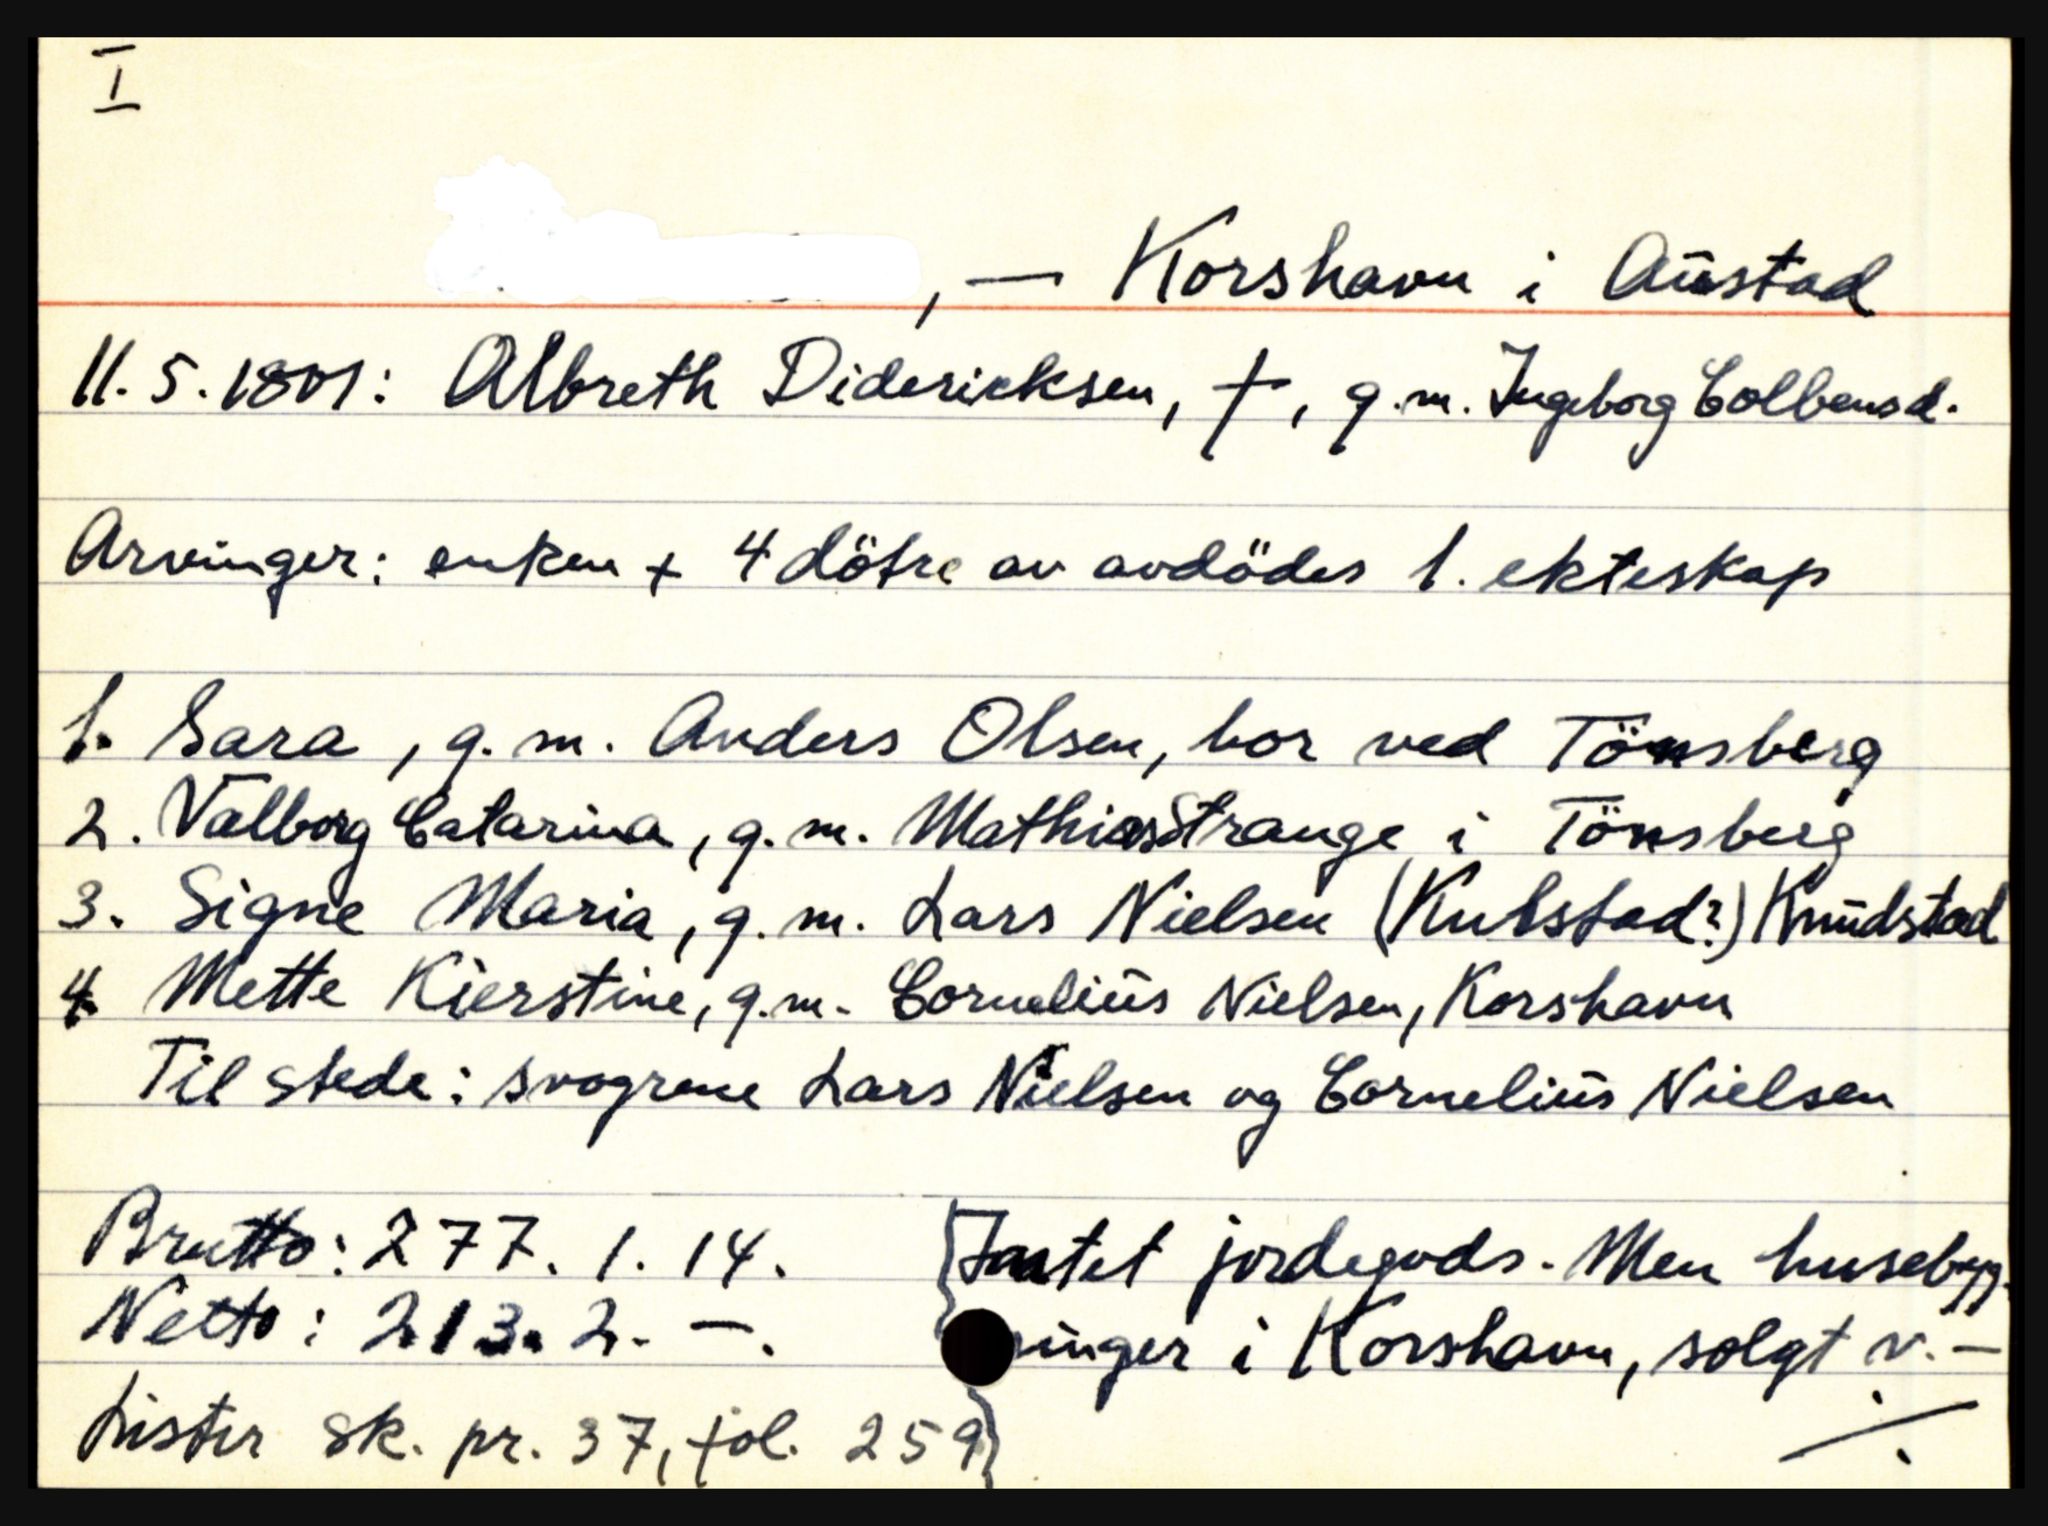 I
, — Korshavn i Austad
11.5.1801: Albreth Didericksen, †, g.m. Ingeborg Colbensd.
Arvinger: enken + 4 dötre av avdödes 1. ekteskap
1. Sara, g.m. Anders Olsen, bor ved Tönsberg
2. Valborg Catarina, g.m. Mathias Strange i Tönsberg
3. Signe Maria, g.m. Lars Nielsen (Kulstad?) Knudstad
4. Mette Kierstine, g.m. Cornelius Nielsen, Korshavn
Til stede: svogrene Lars Nielsen og Cornelius Nielsen
Brutto: 277. 1. 14. { Intet jordegods. Men husebyg-
Netto: 213. 2. —. ninger i Korshavn, solgt v. —
Lister sk. pr. 37, fol. 259} ./.